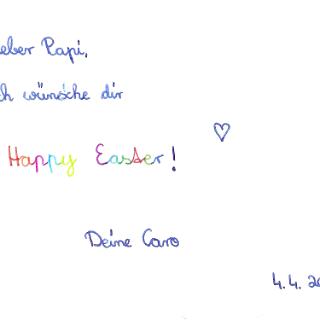 eber Papi,
ch wünsche dir
Happy Easter!
Deine Caro
4.4.20